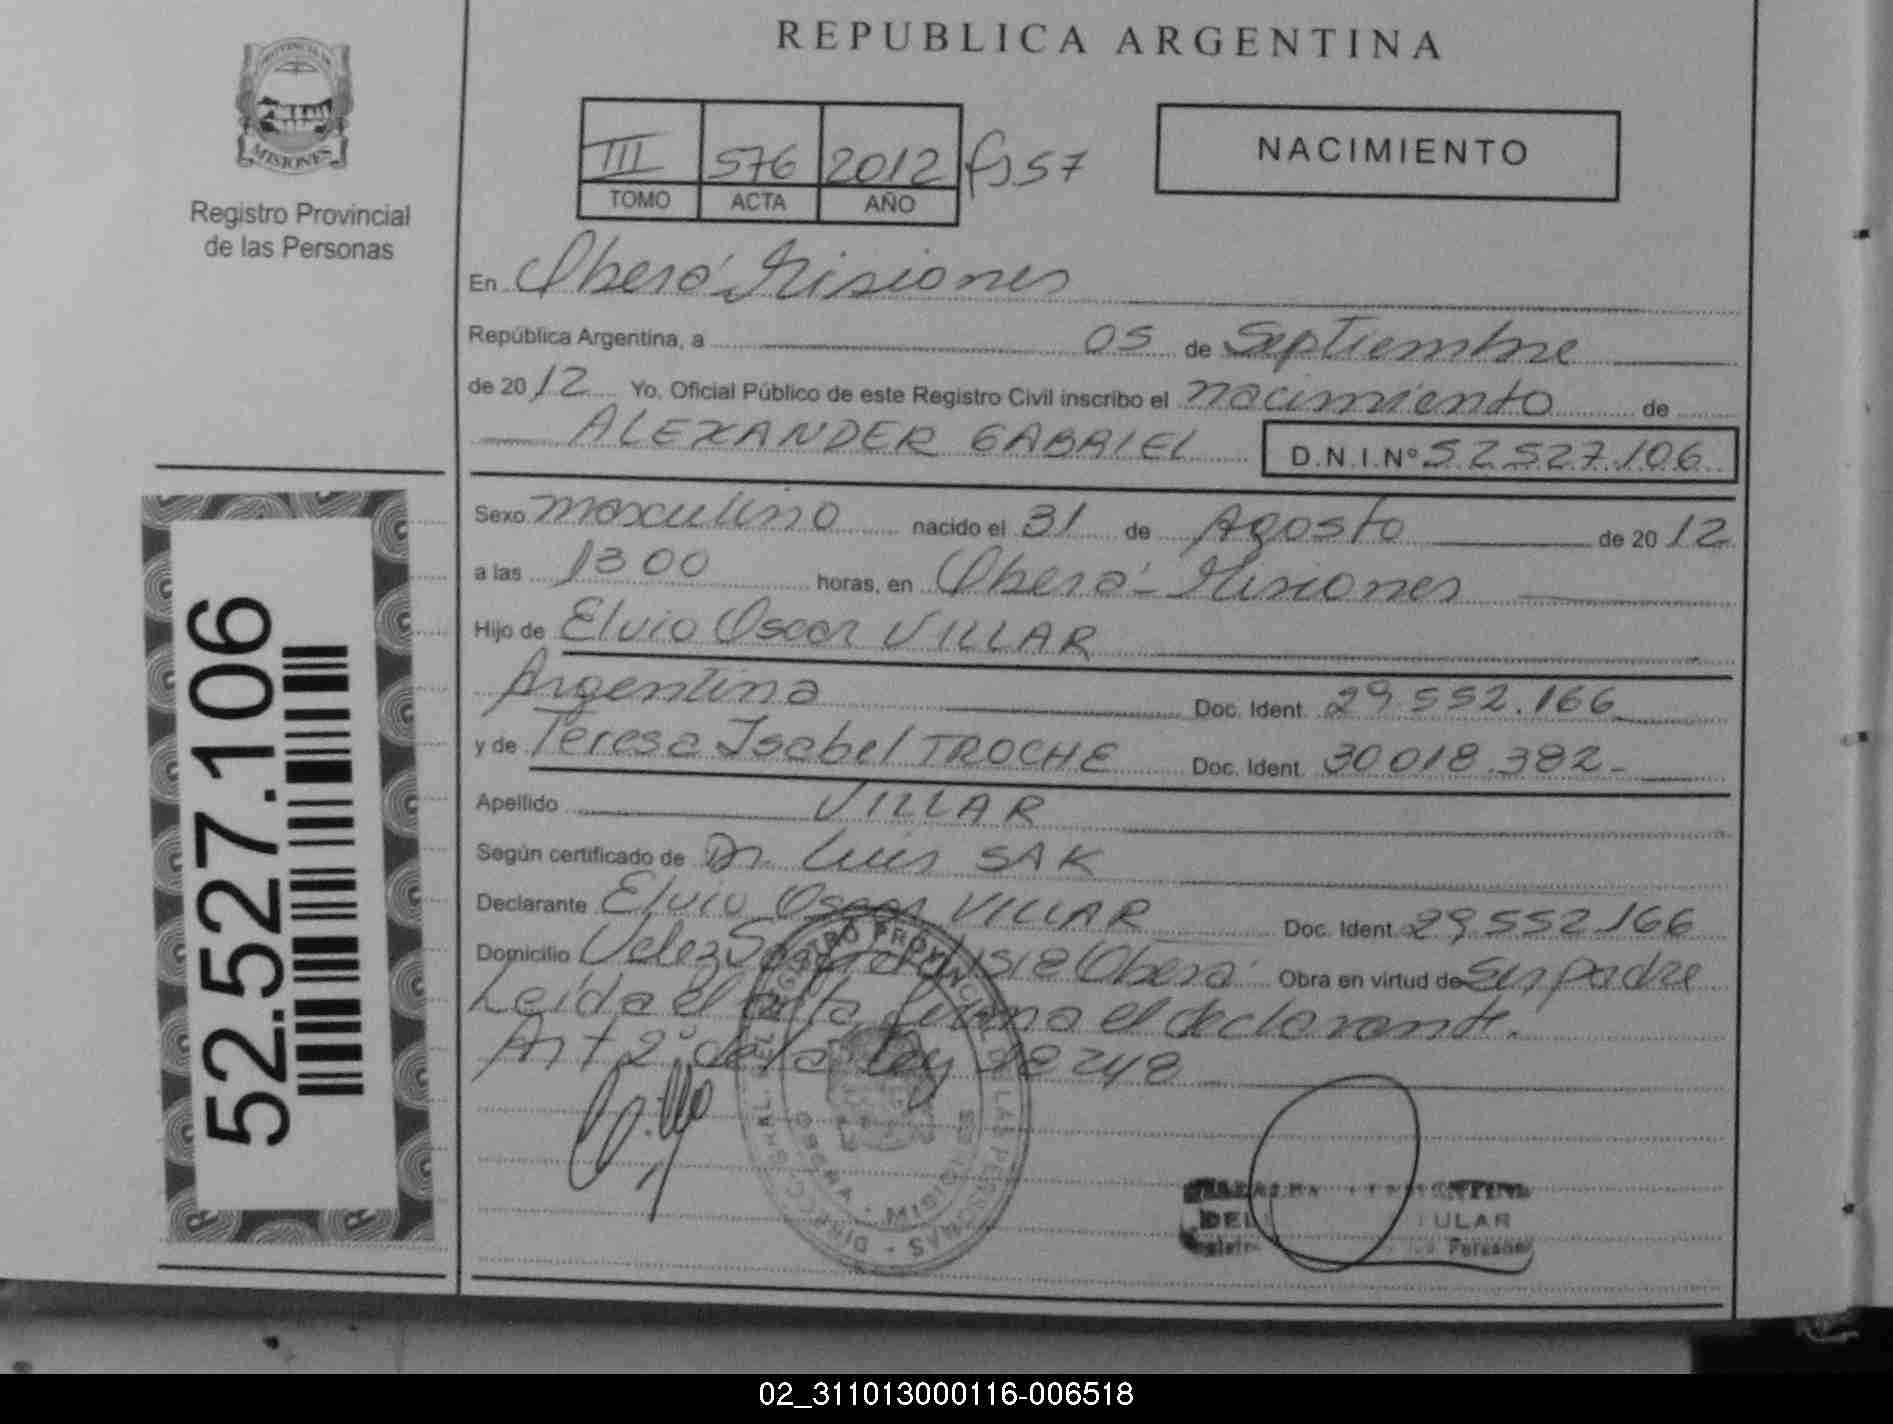 PROVINCIA DE
MISIONES
Registro Provincial
de las Personas
REPUBLICA ARGENTINA
III 576 2012 fs 57
TOMO ACTA AÑO
NACIMIENTO
En Oberá Misiones
República Argentina, a 05 de Septiembre
de 2012 Yo, Oficial Público de este Registro Civil inscribo el nacimiento de
ALEXANDER GABRIEL D.N.I.Nº 52.527.106
Sexo masculino nacido el 31 de Agosto de 2012
a las 13 00 horas, en Oberá - Misiones
Hijo de Elvio Oscar VILLAR
Argentina Doc. Ident. 29.552.166
y de Teresa Isabel TROCHE Doc. Ident. 30018.382-
Apellido VILLAR
Según certificado de Dr. Luis SAK
Declarante Elvio Oscar VILLAR Doc. Ident. 29.552.166
Domicilio Velez Oberá Obra en virtud de ser padre
Leída el acta firma el declarante.
Art 2º de la ley 18248
52.527.106
REGISTRO PROVINCIAL DE LAS PERSONAS
OBERÁ - MISIONES
TITULAR
02_311013000116-006518